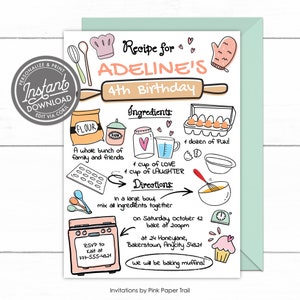 PERSONALIZE & PRINT
Instant
DOWNLOAD
EDIT VIA CORJL
Recipe for
ADELINE'S
4th Birthday
Ingredients:
FLOUR
A whole bunch of
family and friends
1 cup of LOVE
1 cup of LAUGHTER
1 dozen of FUN!
Directions:
In a large bowl,
mix all ingredients together
on Saturday October 12
bake at 2:00pm
at 24 Honeylane,
Bakerstown, Anycity 54821
RSVP to
Kat at
777-555-4821
We will be baking muffins!
Invitations by Pink Paper Trail